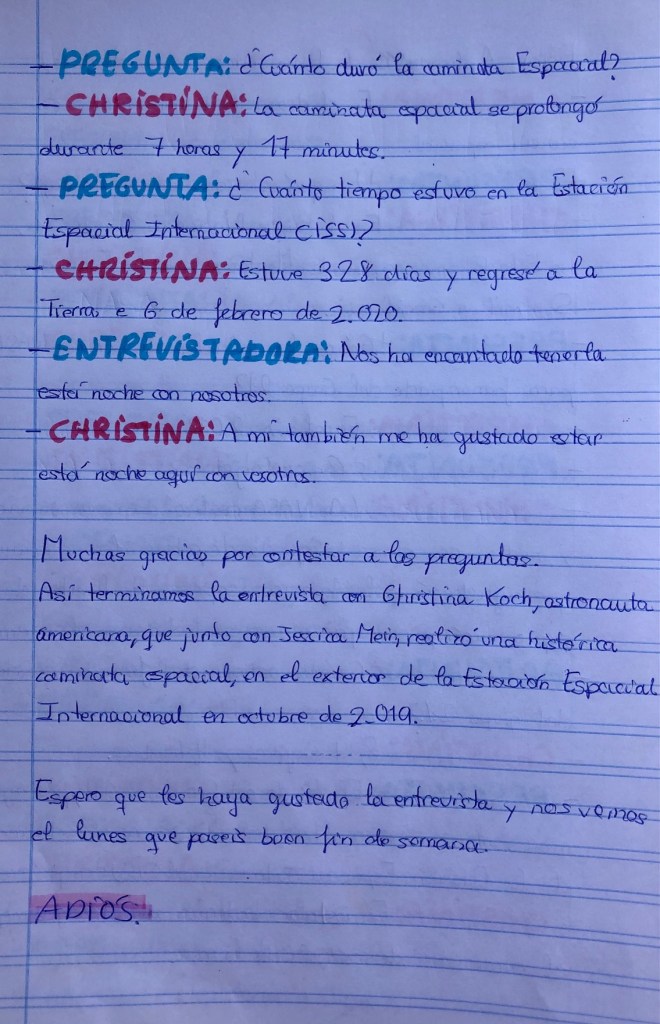 - PREGUNTA: ¿Cuánto duró la caminata Espacial?
- CHRISTINA: La caminata espacial se prolongó
durante 7 horas y 17 minutes.
- PREGUNTA: ¿Cuánto tiempo estuvo en la Estación
Espacial Internacional (ISS)?
- CHRISTINA: Estuve 328 días y regresé a la
Tierra e 6 de febrero de 2.020.
- ENTREVISTADORA: Nos ha encantado tenerla
está noche con nosotros.
- CHRISTINA: A mí también me ha gustado estar
está noche aquí con vosotros.
Muchas gracias por contestar a las preguntas.
Así terminamos la entrevista con Christina Koch, astronauta
americana, que junto con Jessica Meir, realizó una histórica
caminata espacial, en el exterior de la Estación Espacial
Internacional en octubre de 2.019.
Espero que les haya gustado la entrevista y nos vemos
el lunes que paseis buen fin de semana.
ADIOS.